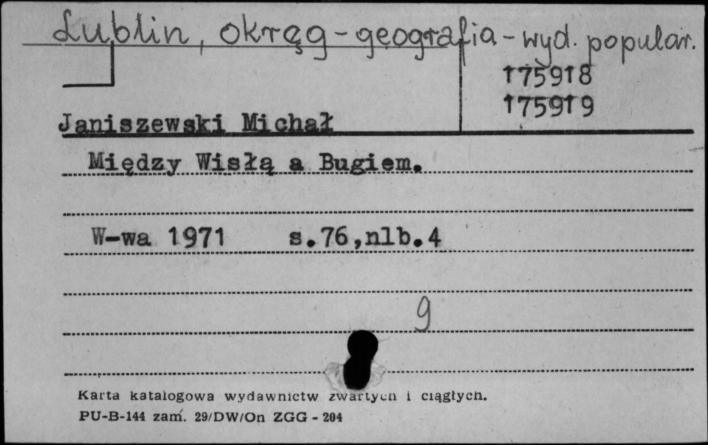 Lublin, okręg - geografia - wyd. popular.
175918
175919
Janiszewski Michał
Między Wisłą a Bugiem.
W-wa 1971 s.76,nlb.4
9
Karta katalogowa wydawnictw zwartych i ciągłych.
PU-B-144 zam. 29/DW/On ZGG - 204